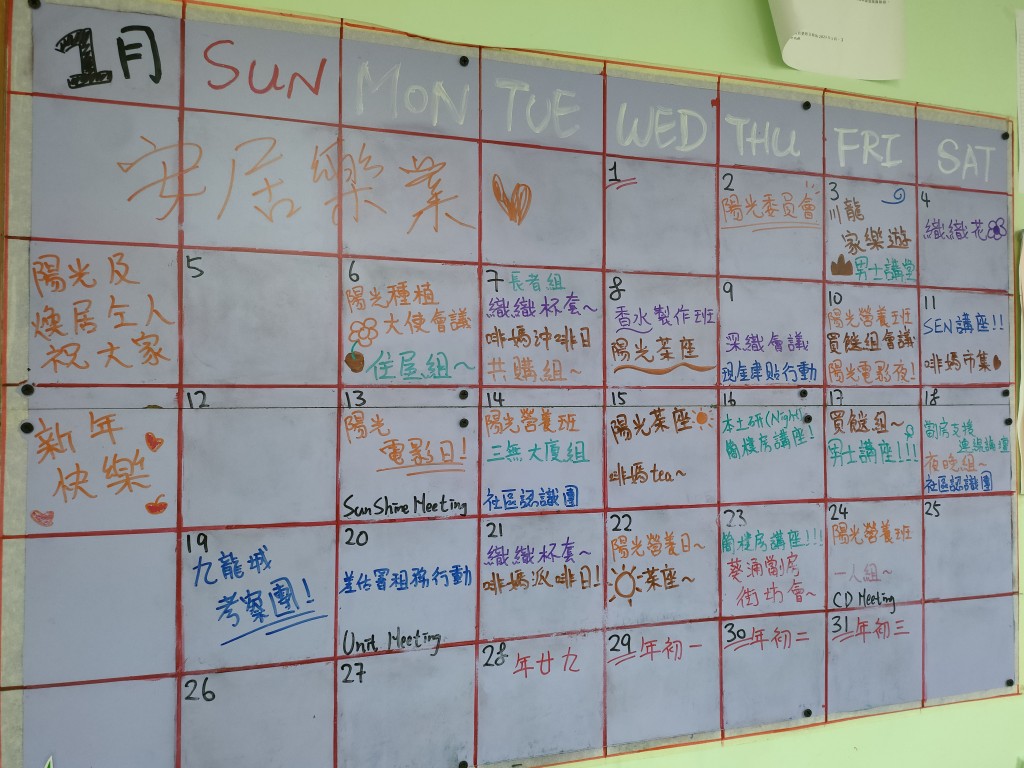 1月
SUN
MON
TUE
WED
THU
FRI
SAT
安居樂業
1
2
陽光委員會
3
川龍
家樂遊
男士講堂
4
織織花
陽光及
煥居仝人
祝大家
5
6
陽光種植
大使會議
住屋組~
7 長者組
織織杯套~
啡媽沖啡日
共購組~
8
香水製作班
陽光茶座
9
梁織會議
現金津貼行動
10
陽光營養班
買餸組會議
陽光電影夜!
11
SEN講座!!
啡媽市集
新年
快樂
12
13
陽光
電影日!
SunShine Meeting
14
陽光營養班
三無大廈組
社區認識團
15
陽光茶座
啡媽tea~
16
本土研(Night)
簡樸房講座!
17
買餸組~
男士講座!!!
18
劏房支援
連線論壇
夜晚組~
社區認識團
19
九龍城
考察團!
20
差估署租務行動
Unit Meeting
21
織織杯套~
啡媽派啡日!
22
陽光營養日~
茶座~
23
簡樸房講座!!!
葵涌劏房
街坊會~
24
陽光營養班
一人組~
CD Meeting
25
26
27
28 年廿九
29 年初一
30 年初二
31 年初三